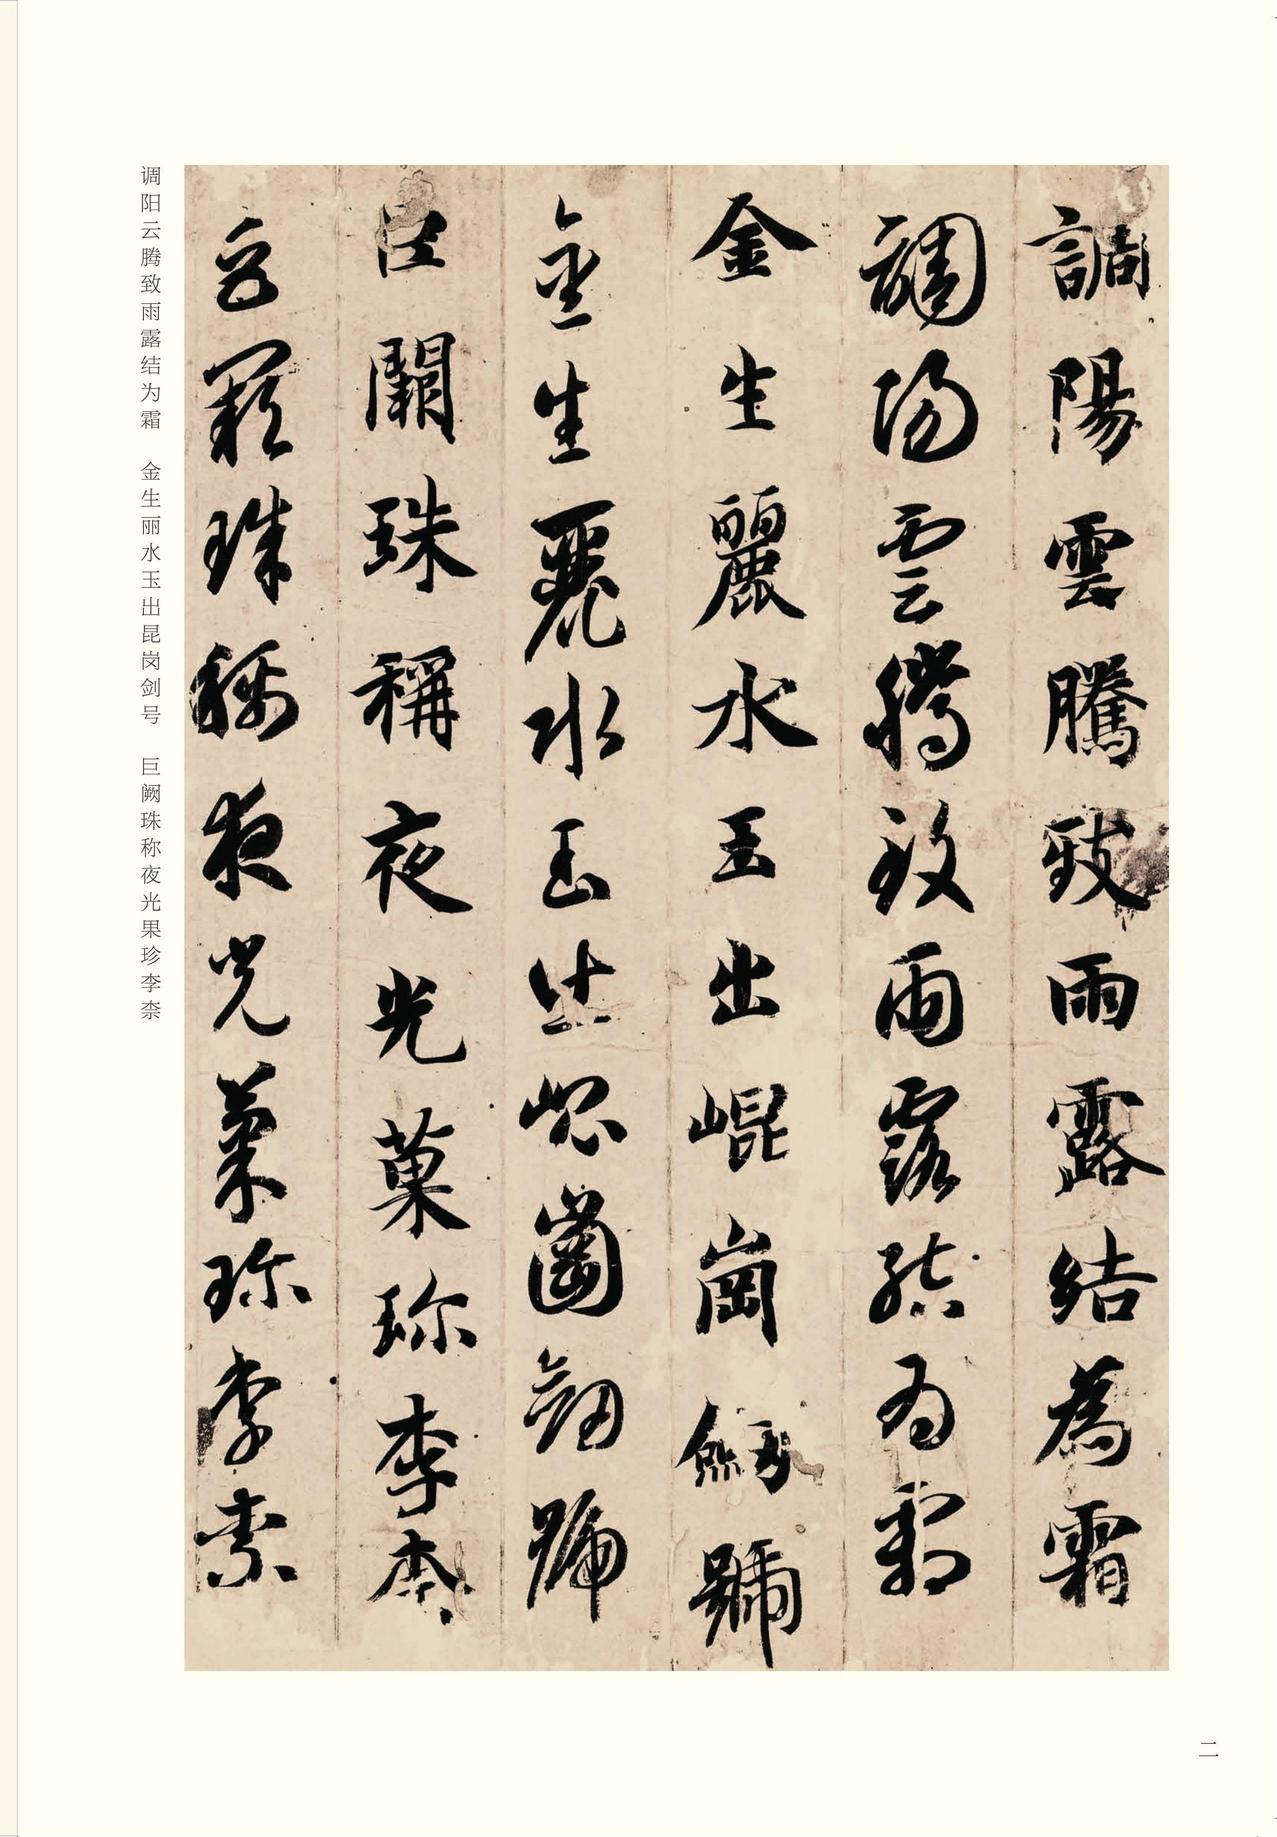 調陽雲騰致雨露結為霜
調陽雲騰致雨露結為霜
金生麗水玉出崐崗劒號
金生麗水玉出崐崗劒號
巨闕珠稱夜光菓珎李柰
巨闕珠稱夜光菓珎李柰
调阳云腾致雨露结为霜　金生丽水玉出昆岗剑号　巨阙珠称夜光果珍李柰
二